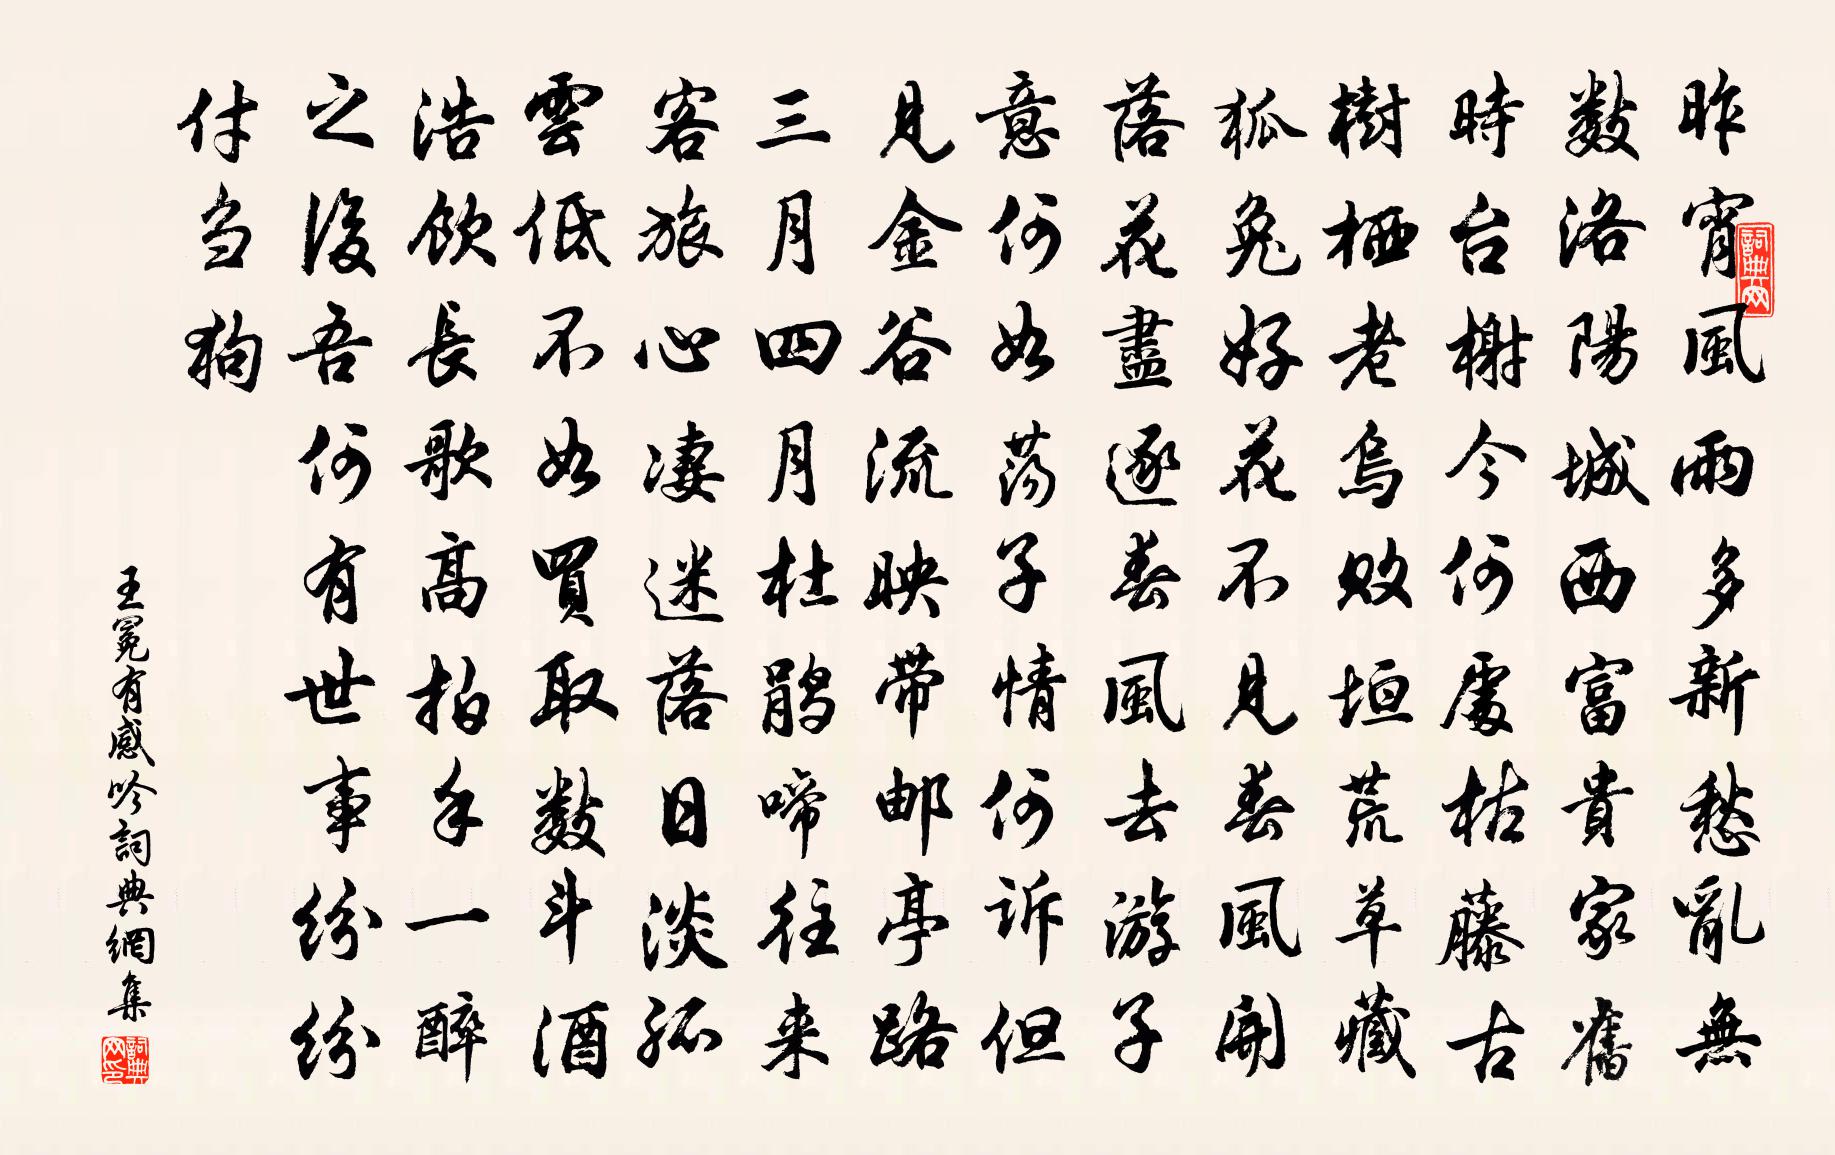 昨宵風雨多新愁亂無
数洛陽城西富貴家舊
時台榭今何處枯藤古
樹栖老烏敗垣荒草藏
狐兔好花不見春風開
落花盡逐春風去游子
意何如荡子情何诉但
見金谷流映带邮亭路
三月四月杜鹃啼往来
客旅心凄迷落日淡孤
雲低不如買取数斗酒
浩飲長歌高拍手一醉
之後吾何有世事纷纷
付刍狗
王冕有感吟詞典網集
詞典网
詞典网印